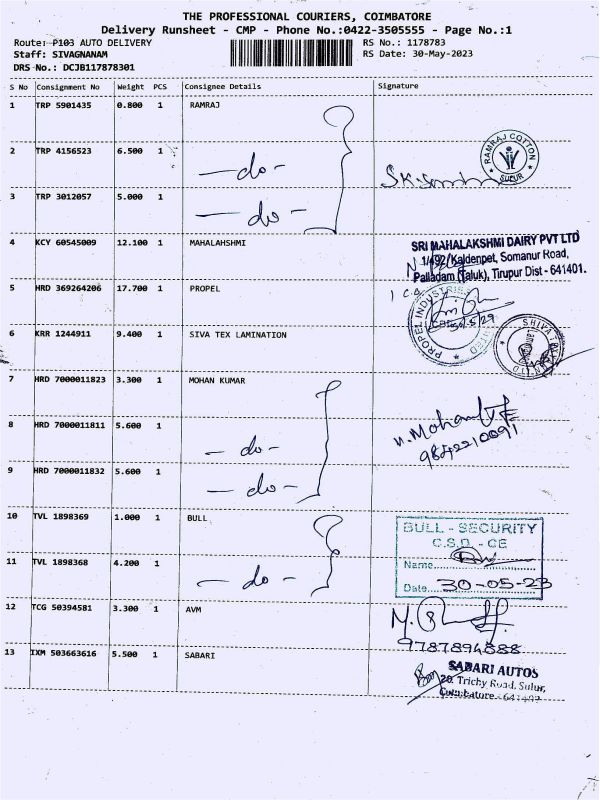 THE PROFESSIONAL COURIERS, COIMBATORE
Delivery Runsheet - CMP - Phone No.:0422-3505555 - Page No.:1
Route: P103 AUTO DELIVERY RS No.: 1178783
Staff: SIVAGNANAM RS Date: 30-May-2023
DRS No.: DCJB117878301
S No Consignment No Weight PCS Consignee Details Signature
1 TRP 5901435 0.800 1 RAMRAJ
2 TRP 4156523 6.500 1 -do-
RAMRAJ COTTON
SULUR
3 TRP 3012057 5.000 1 -do-
4 KCY 60545009 12.100 1 MAHALAHSHMI
SRI MAHALAKSHMI DAIRY PVT LTD
1/492, Kaldenpet, Somanur Road,
Palladam (Taluk), Tirupur Dist - 641401.
5 HRD 369264206 17.700 1 PROPEL
PROPEL INDUSTRIES
6 KRR 1244911 9.400 1 SIVA TEX LAMINATION
7 HRD 7000011823 3.300 1 MOHAN KUMAR
8 HRD 7000011811 5.600 1 -do-
9842210091
9 HRD 7000011832 5.600 1 -do-
10 TVL 1898369 1.000 1 BULL
BULL - SECURITY
C.S.D. - CE
Name
11 TVL 1898368 4.200 1 -do-
Date 30-05-23
12 TCG 50394581 3.300 1 AVM
9787894888
13 IXM 503663616 5.500 1 SABARI
SABARI AUTOS
20. Trichy Road, Sulur,
Coimbatore - 641402